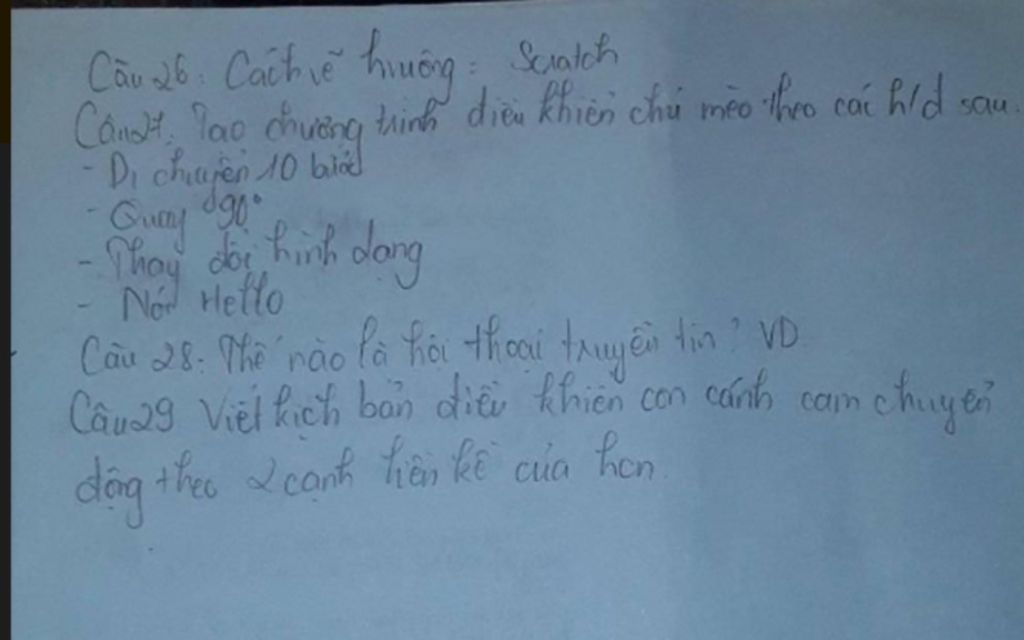 Câu 26: Cách vẽ hvuông: Scratch
Câu 27: Tạo chương trình điều khiển chú mèo theo các h/d sau.
- Di chuyển 10 bước
- Quay 90°
- Thay đổi hình dạng
- Nói Hello
Câu 28: Thế nào là hội thoại truyền tin? VD
Câu 29 Viết kịch bản điều khiển con cánh cam chuyển
động theo 2 cạnh liền kề của hcn.